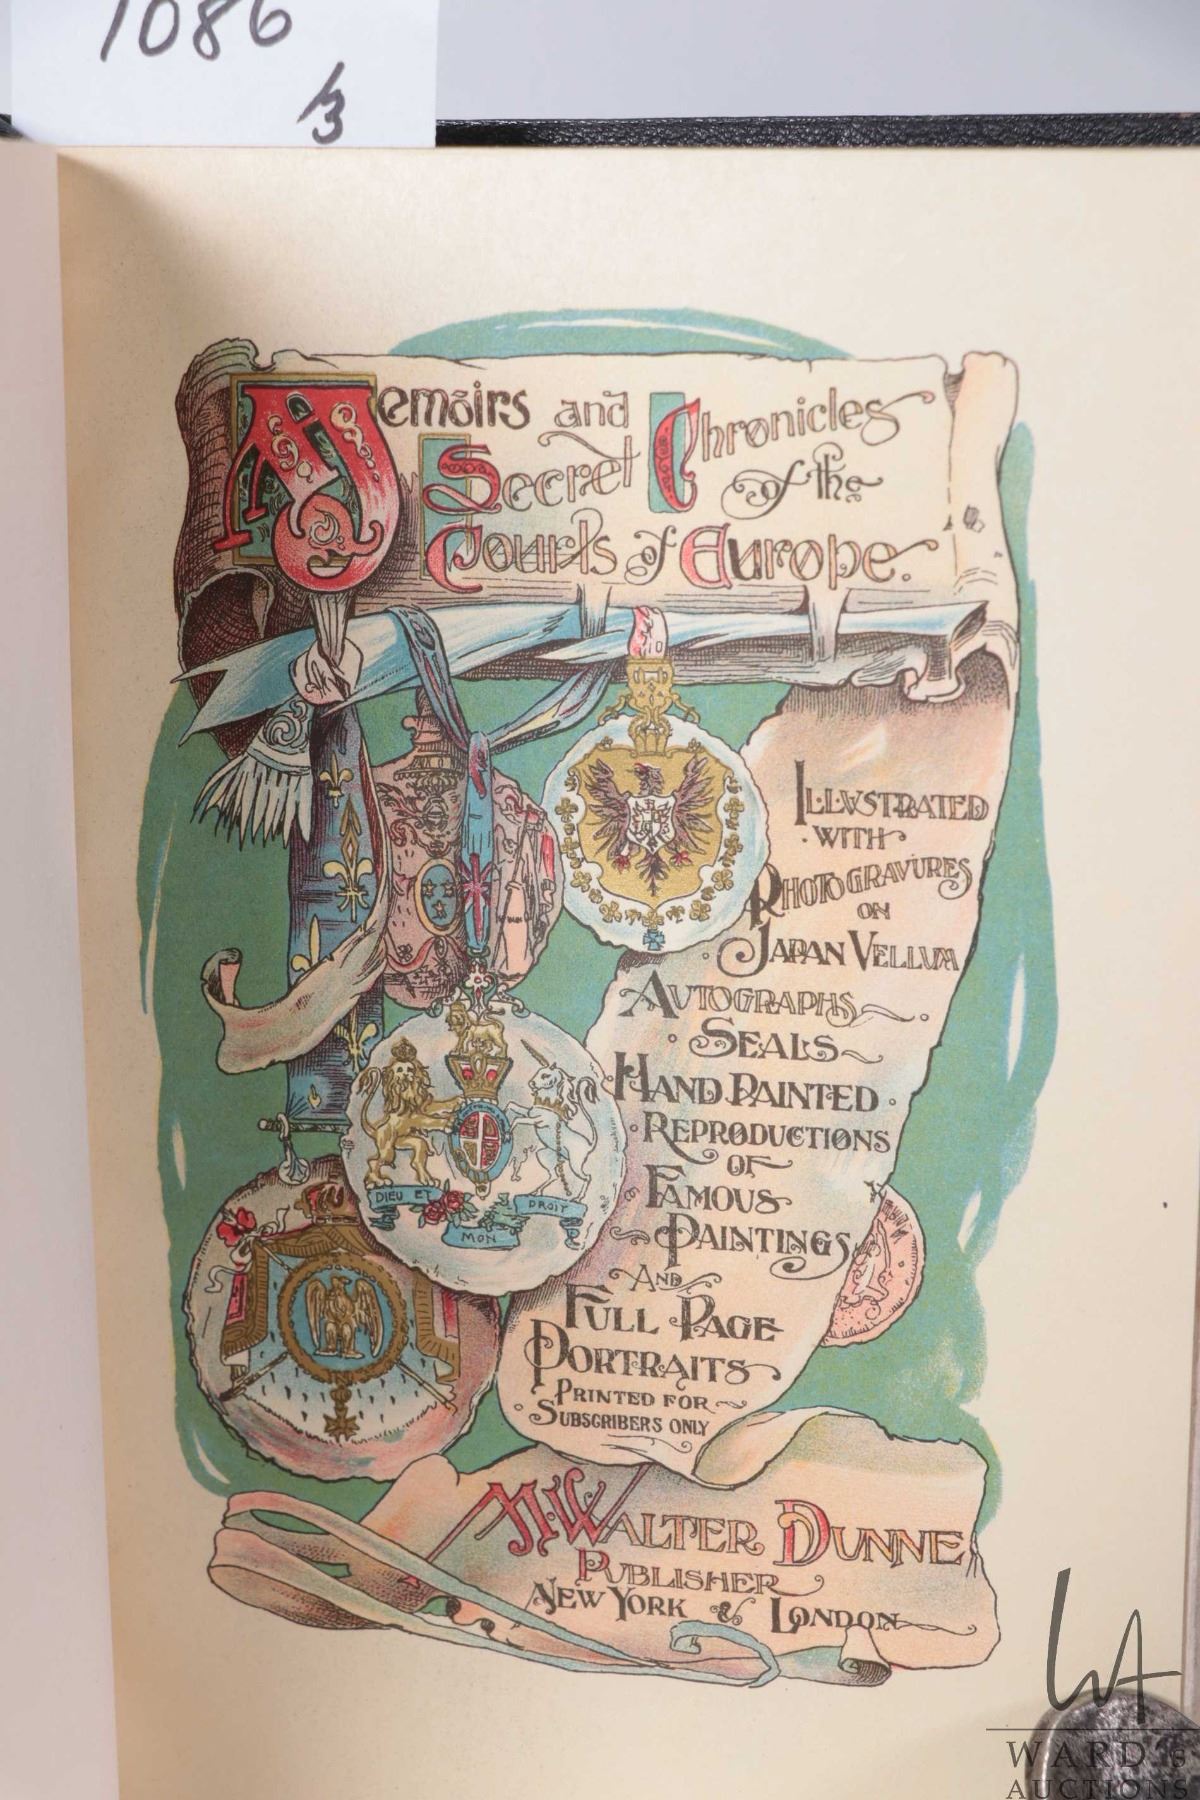 1086
1/3
Memoirs and
Secret Chronicles
of the
Courts of Europe.
ILLVSTRATED
· WITH
PHOTOGRAVURES
ON
JAPAN VELLUM
AVTOGRAPHS
SEALS
HAND PAINTED
REPRODUCTIONS
OF
FAMOUS
PAINTINGS
AND
FULL PAGE
PORTRAITS
PRINTED FOR
SUBSCRIBERS ONLY
DIEU ET
MON
DROIT
M. WALTER DUNNE
PUBLISHER
NEW YORK & LONDON
WA
WARD'S
AUCTIONS